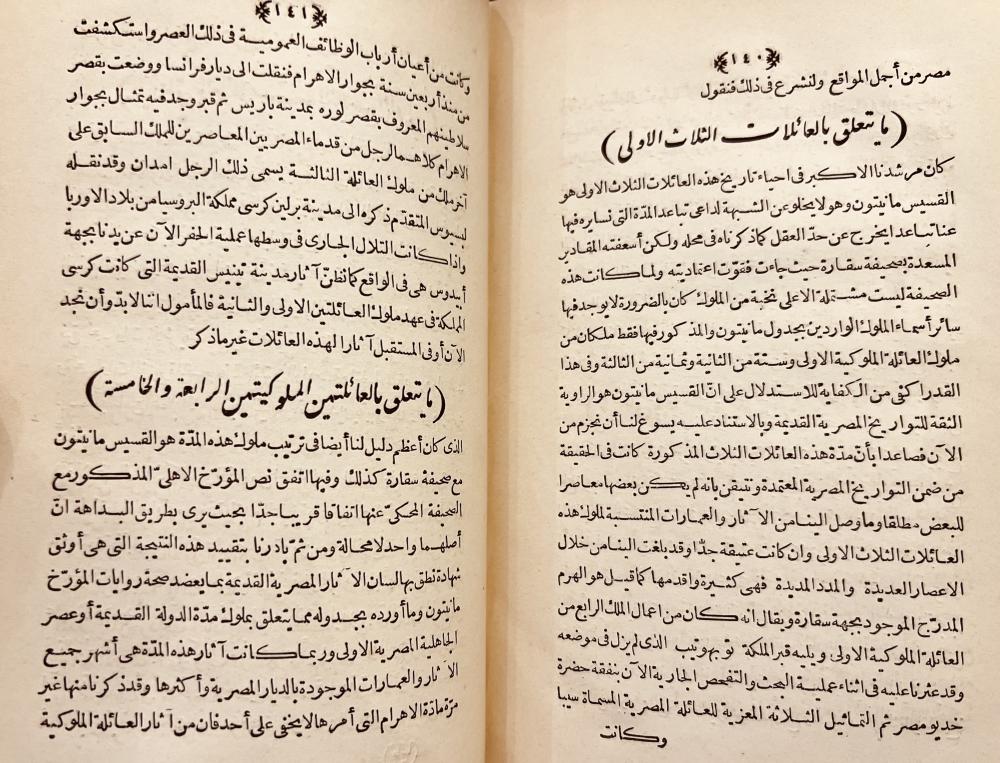 ﴿١٤٠﴾
مصر من أجمل المواقع ولنشرع فى ذلك فنقول
(ما يتعلق بالعائلات الثلاث الاولى)
كان مرشدنا الاكبر فى احياء تاريخ هذه العائلات الثلاث الاولى هو
القسيس مانيتون وهو لا يخلو عن الشبهة لداعى تباعد المدّة التى نسايره فيها
عنا تباعدا يخرج عن حدّ العقل كما ذكرناه فى محله ولكن أسعفته المقادير
المسعدة بصحيفة سقارة حيث جاءت فقوّت اعتماديته ولما كانت هذه
الصحيفة ليست مشتملة الا على نخبة من الملوك كان بالضرورة لا يوجد فيها
سائر أسماء الملوك الواردين بجدول مانيتون والمذكور فيها فقط ملكان من
ملوك العائلة الملوكية الاولى وستة من الثانية وثمانية من الثالثة وفى هذا
القدر اكفى من الكفاية للاستدلال على انّ القسيس مانيتون هو الراوية
الثقة للتواريخ المصرية القديمة وبالاستناد عليه يسوغ لنا أن نجزم من
الآن فصاعدا بأنّ مدّة هذه العائلات الثلاث المذكورة كانت فى الحقيقة
من ضمن التواريخ المصرية المعتمدة ونتيقن بانه لم يكن بعضها معاصرا
للبعض مطلقا وما وصل الينا من الآثار والعمارات المنتسبة لملوك هذه
العائلات الثلاث الاولى وان كانت عتيقة جدّا وقد بلغت الينا من خلال
الاعصار العديدة والمدد المديدة فهى كثيرة واقدمها كما قيل هو الهرم
المدرّج الموجود بجهة سقارة ويقال انه كان من اعمال الملك الرابع من
العائلة الملوكية الاولى ويليه قبر الملكة توبهوتيب الذى لم يزل فى موضعه
وقد عثرنا عليه فى اثناء عملية البحث والتفحص الجارية الآن بنفقة حضرة
خديو مصر ثم التماثيل الثلاثة المعزية للعائلة المصرية المسماة سيبا
وكانت
﴿١٤١﴾
وكانت من أعيان أرباب الوظائف العمومية فى ذلك العصر واستكشفت
من منذ أربعين سنة بجوار الاهرام فنقلت الى ديار فرانسا ووضعت بقصر
سلاطينهم المعروف بقصر لوره بمدينة باريس ثم قبر وجد فيه تمثال بجوار
الاهرام كلاهما لرجل من قدماء المصريين المعاصرين للملك السابق على
آخر ملك من ملوك العائلة الثالثة يسمى ذلك الرجل امدان وقد نقله
لبسيوس المتقدّم ذكره الى مدينة برلين كرسى مملكة البروسيا من بلاد الاوربا
واذا كانت التلال الجارى فى وسطها عملية الحفر الآن عن يدنا بجهة
أبيدوس هى فى الواقع كما نظنّ آثار مدينة تينيس القديمة التى كانت كرسى
المملكة فى عهد ملوك العائلتين الاولى والثانية فالمأمول اننا لابدّ وأن نجد
الآن أو فى المستقبل آثارا لهذه العائلات غير ما ذكر
(ما يتعلق بالعائلتين الملوكيتين الرابعة والخامسة)
الذى كان أعظم دليل لنا أيضا فى ترتيب ملوك هذه المدّة هو القسيس مانيتون
مع صحيفة سقارة كذلك وفيها اتفق نص المؤرّخ الاهلىّ المذكور مع
الصحيفة المحكىّ عنها اتفاقا قريبا جدّا بحيث يرى بطريق البداهة انّ
أصلهما واحد لا محالة ومن ثمّ بادرنا بتقييد هذه النتيجة التى هى أوثق
شهادة نطق بها لسان الآثار المصرية القديمة بما يعضد صحة روايات المؤرّخ
مانيتون وما أورده بجدوله مما يتعلق بملوك مدّة الدولة القديمة أو عصر
الجاهلية المصرية الاولى وربما كانت آثار هذه المدّة هى أشهر جميع
الآثار والعمارات الموجودة بالديار المصرية وأكثرها وقد ذكرنا منها غير
مرّة مادّة الاهرام التى أمرها لا يخفى على أحد فان من آثار العائلة الملوكية